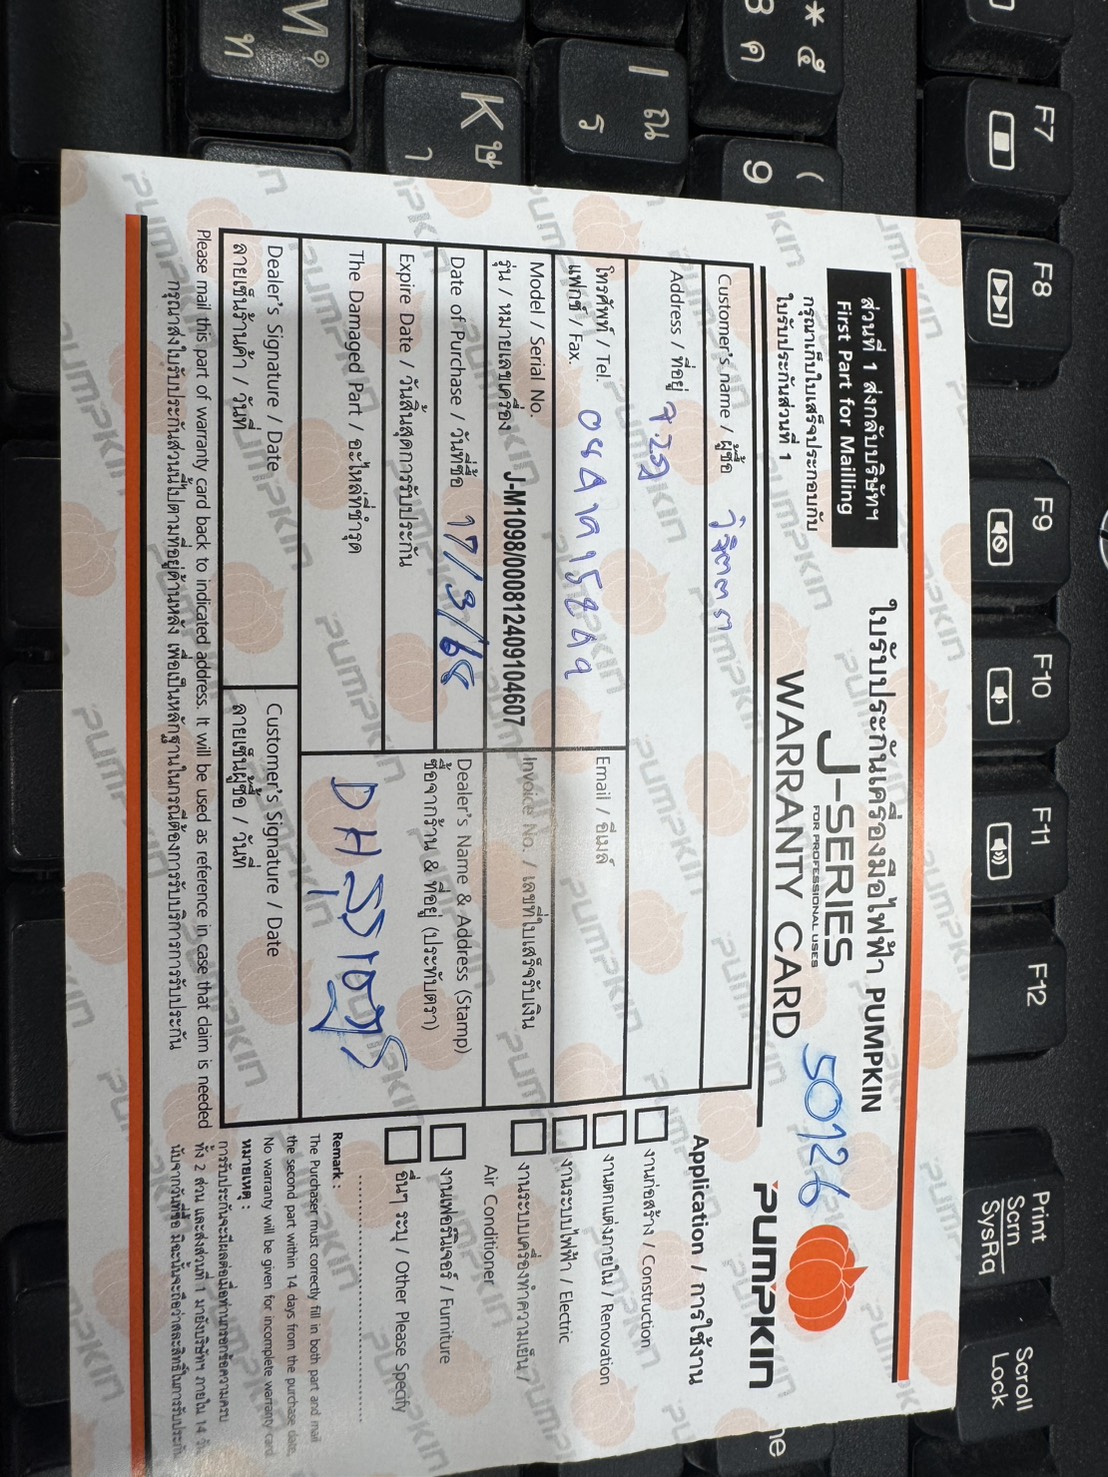 ส่วนที่ 1 ส่งกลับบริษัทฯ
First Part for Mailling
กรุณาเก็บใบเสร็จประกอบกับ
ใบรับประกันส่วนที่ 1
ใบรับประกันเครื่องมือไฟฟ้า PUMPKIN
J-SERIES
FOR PROFESSIONAL USES
WARRANTY CARD
50126
PUMPKIN
Customer's name / ผู้ซื้อ
Address / ที่อยู่
โทรศัพท์ / Tel.
แฟกซ์ / Fax.
Email / อีเมล์
Model / Serial No.
รุ่น / หมายเลขเครื่อง J-M1098/00081240910​4607
Invoice No. / เลขที่ใบเสร็จรับเงิน
Date of Purchase / วันที่ซื้อ 17/3/68
Expire Date / วันสิ้นสุดการรับประกัน
Dealer's Name & Address (Stamp)
ชื่อจากร้าน & ที่อยู่ (ประทับตรา)
The Damaged Part / อะไหล่ที่ชำรุด
Dealer's Signature / Date
ลายเซ็นร้านค้า / วันที่
Customer's Signature / Date
ลายเซ็นผู้ซื้อ / วันที่
Please mail this part of warranty card back to indicated address. It will be used as reference in case that claim is needed
กรุณาส่งใบรับประกันส่วนนี้ไปตามที่อยู่ด้านหลัง เพื่อเป็นหลักฐานในกรณีต้องการรับบริการการรับประกัน
Application / การใช้งาน
งานก่อสร้าง / Construction
งานตกแต่งภายใน / Renovation
งานระบบไฟฟ้า / Electric
งานระบบเครื่องทำความเย็น /
Air Conditioner
งานเฟอร์นิเจอร์ / Furniture
อื่นๆ ระบุ / Other Please Specify
Remark :
The Purchaser must correctly fill in both part and mail
the second part within 14 days from the purchase date.
No warranty will be given for incomplete warranty card
หมายเหตุ :
การรับประกันจะมีผลต่อเมื่อท่านกรอกข้อความครบ
ทั้ง 2 ส่วน และส่งส่วนที่ 1 มายังบริษัทฯ ภายใน 14 วัน
นับจากวันที่ซื้อ มิฉะนั้นจะถือว่าสละสิทธิ์ในการรับประกัน
F7
F8
F9
F10
F11
F12
Print
Scrn
SysRq
Scroll
Lock